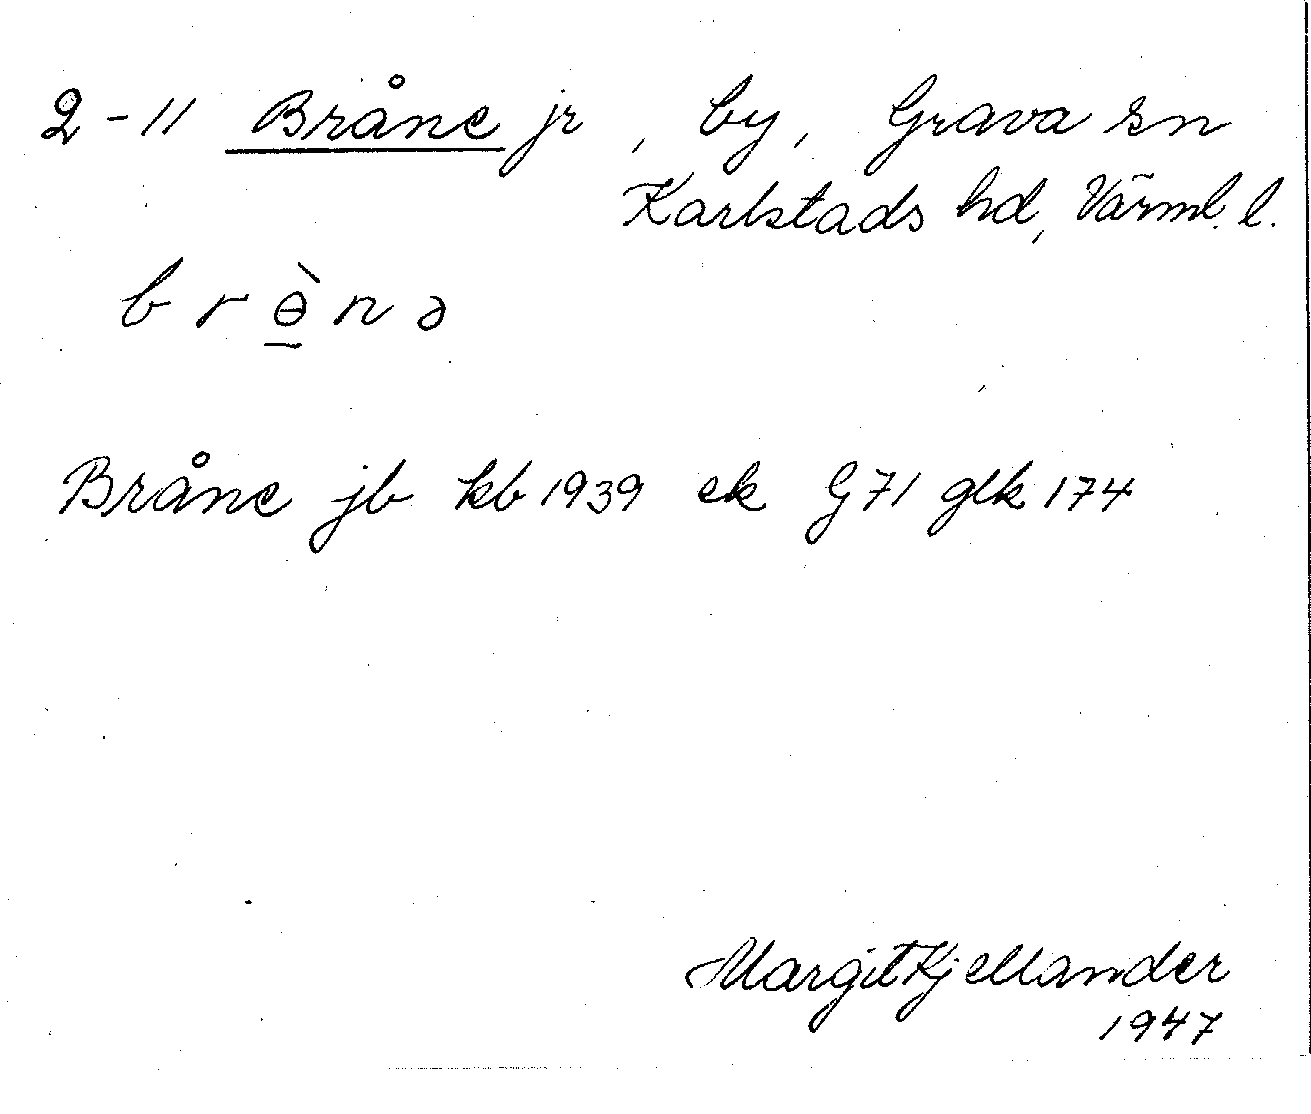 2-11 Bråne jr, by, Grava sn
Karlstads hd, Värml. l.
b r ɵ̠̀ n ə
Bråne jb kb 1939 ek G 71 glk 174
Margit Kjellander
1947